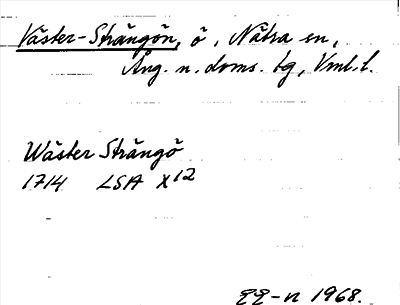 Väster-Strängön, ö, Nätra sn,
Ång. n. doms. tg, Vnl. l.
Wäster Strängö
1714 LSA X12
1968.